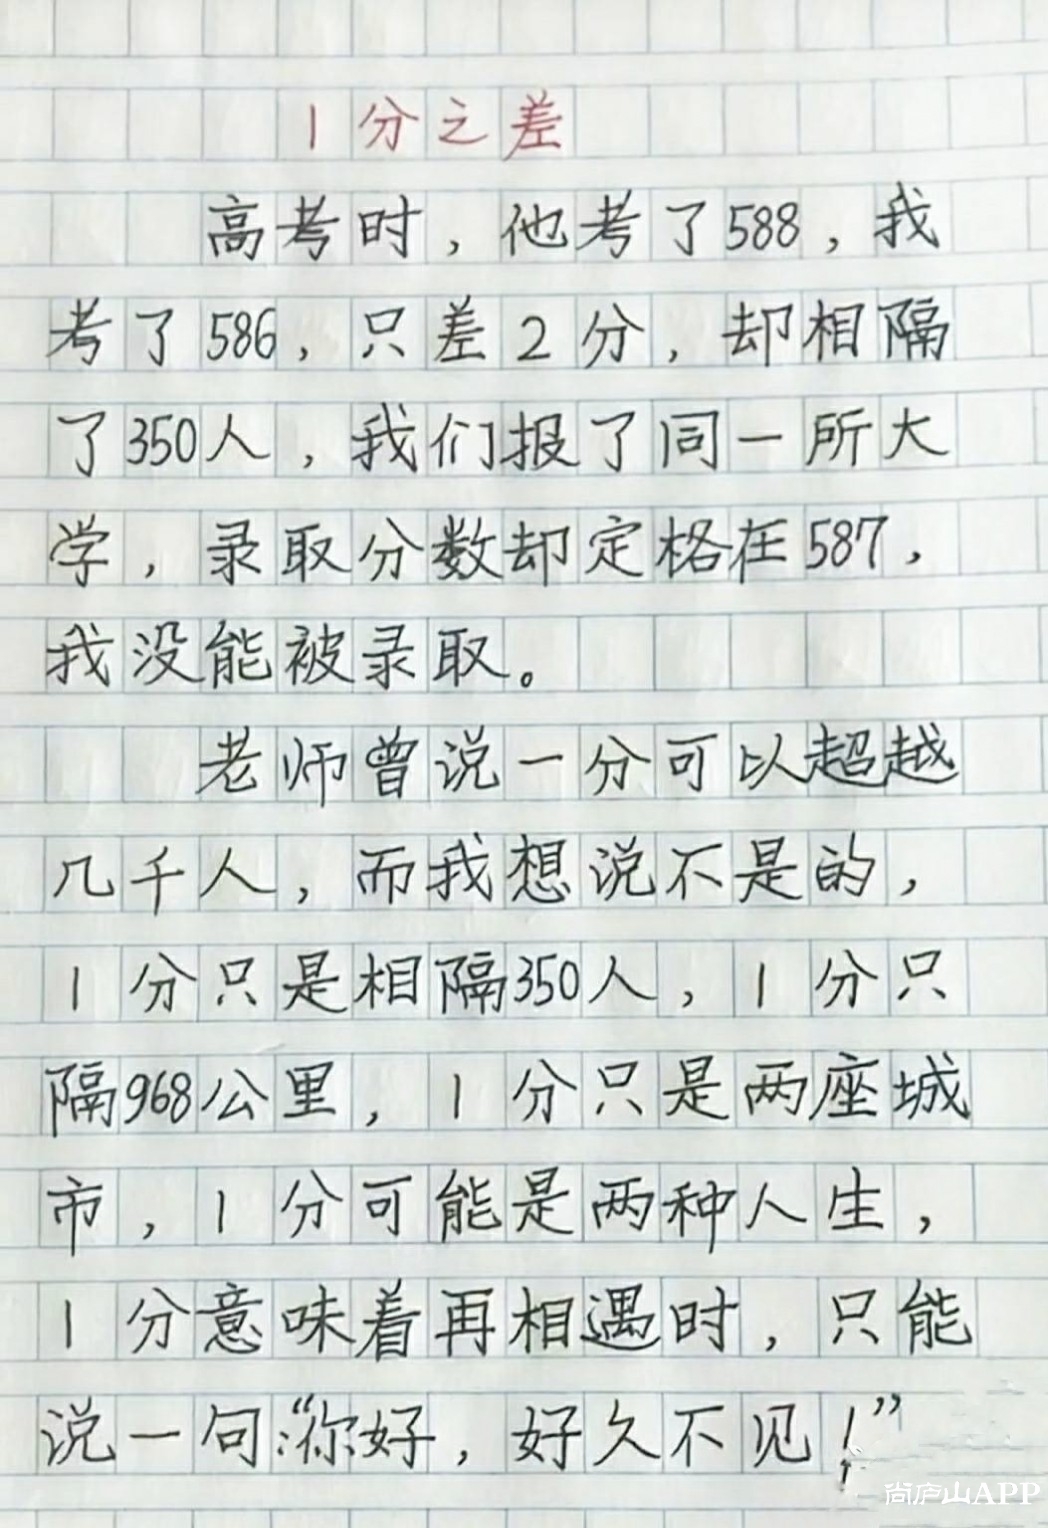 1分之差
高考时，他考了588，我
考了586，只差2分，却相隔
了350人，我们报了同一所大
学，录取分数却定格在587，
我没能被录取。
老师曾说一分可以超越
几千人，而我想说不是的，
1分只是相隔350人，1分只
隔968公里，1分只是两座城
市，1分可能是两种人生，
1分意味着再相遇时，只能
说一句：“你好，好久不见！”
尚庐山APP